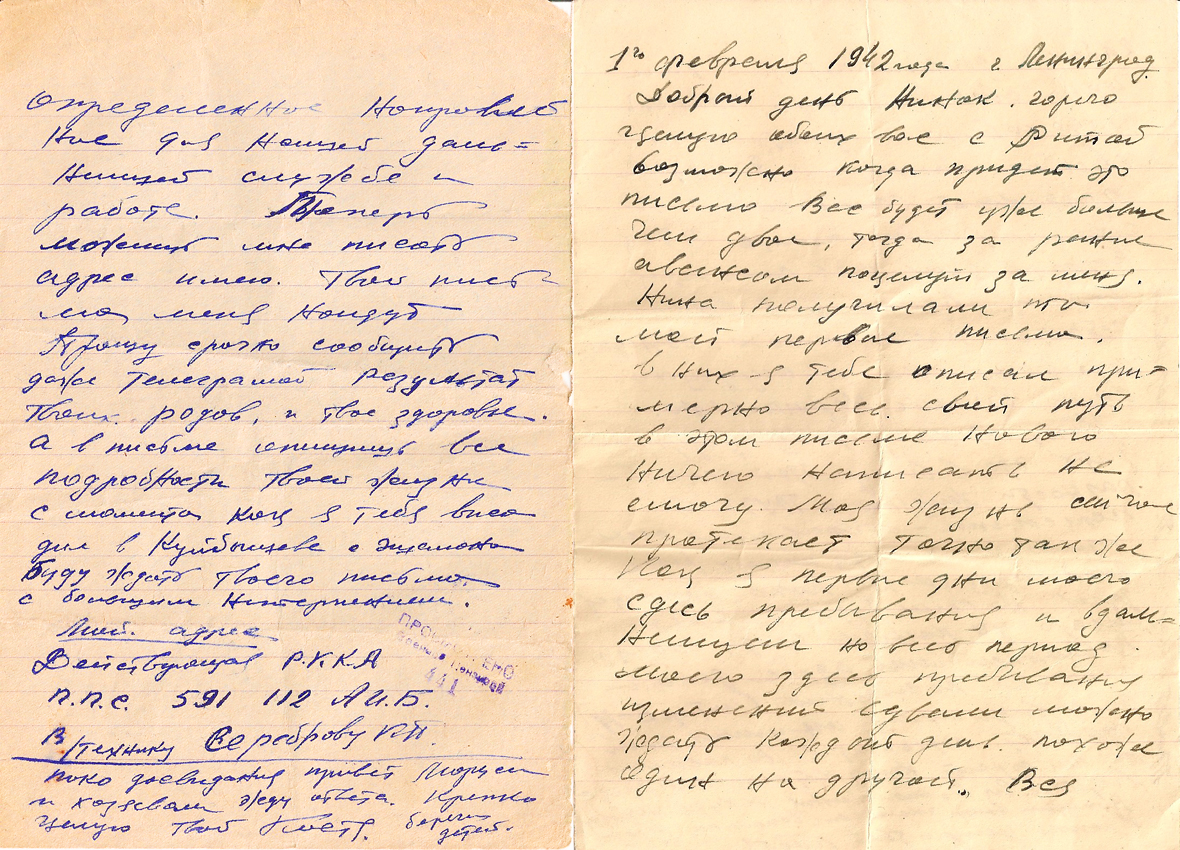 определенное направлен
ное для нашей даль=
нишей службе и
работе. Теперь
можешь мне писать
адрес имею. Твои пись-
ма меня найдут
Прошу срочно сообщить
даже телеграмой результат
твоих родов, и твое здоровье.
А в письме опишишь все
подробности твоей жизни
с момента как я тебя виса
дил в Куйбышеве с эшалона
Буду ждать твоего письма
с большим интерпением.
Мой. адрес
Действующая Р.К.К.А
П.П.С. 591 112 А.И.Б.
В/технику Сереброву К.П.
ПРОСМОТРЕНО
Военной Цензурой
441
пока досвидания привет Марусе
и хозяевам жду ответа. Крепко
целую твой Костя. береги
детей.
1го февраля 1942 года г Ленинград
Добрый день Нинок. горячо
целую обоих вас с Ритой
возможно когда придет это
письмо Вас будет уже больше
чем двое, тогда за ранее
авансом поцелуй за меня.
Нина получилали ты
мои первые письма.
в них я тебе описал при=
мерно весь свой путь
в этом письме нового
ничего написать не
смогу. Моя жизнь сейчас
протекает точно так же
как в первые дни моего
сдесь пребывания и вдаль=
нишем на весь период
моего здесь пребывания
изменений едвали можно
ждать каждый день. похож
один на другой. Вся